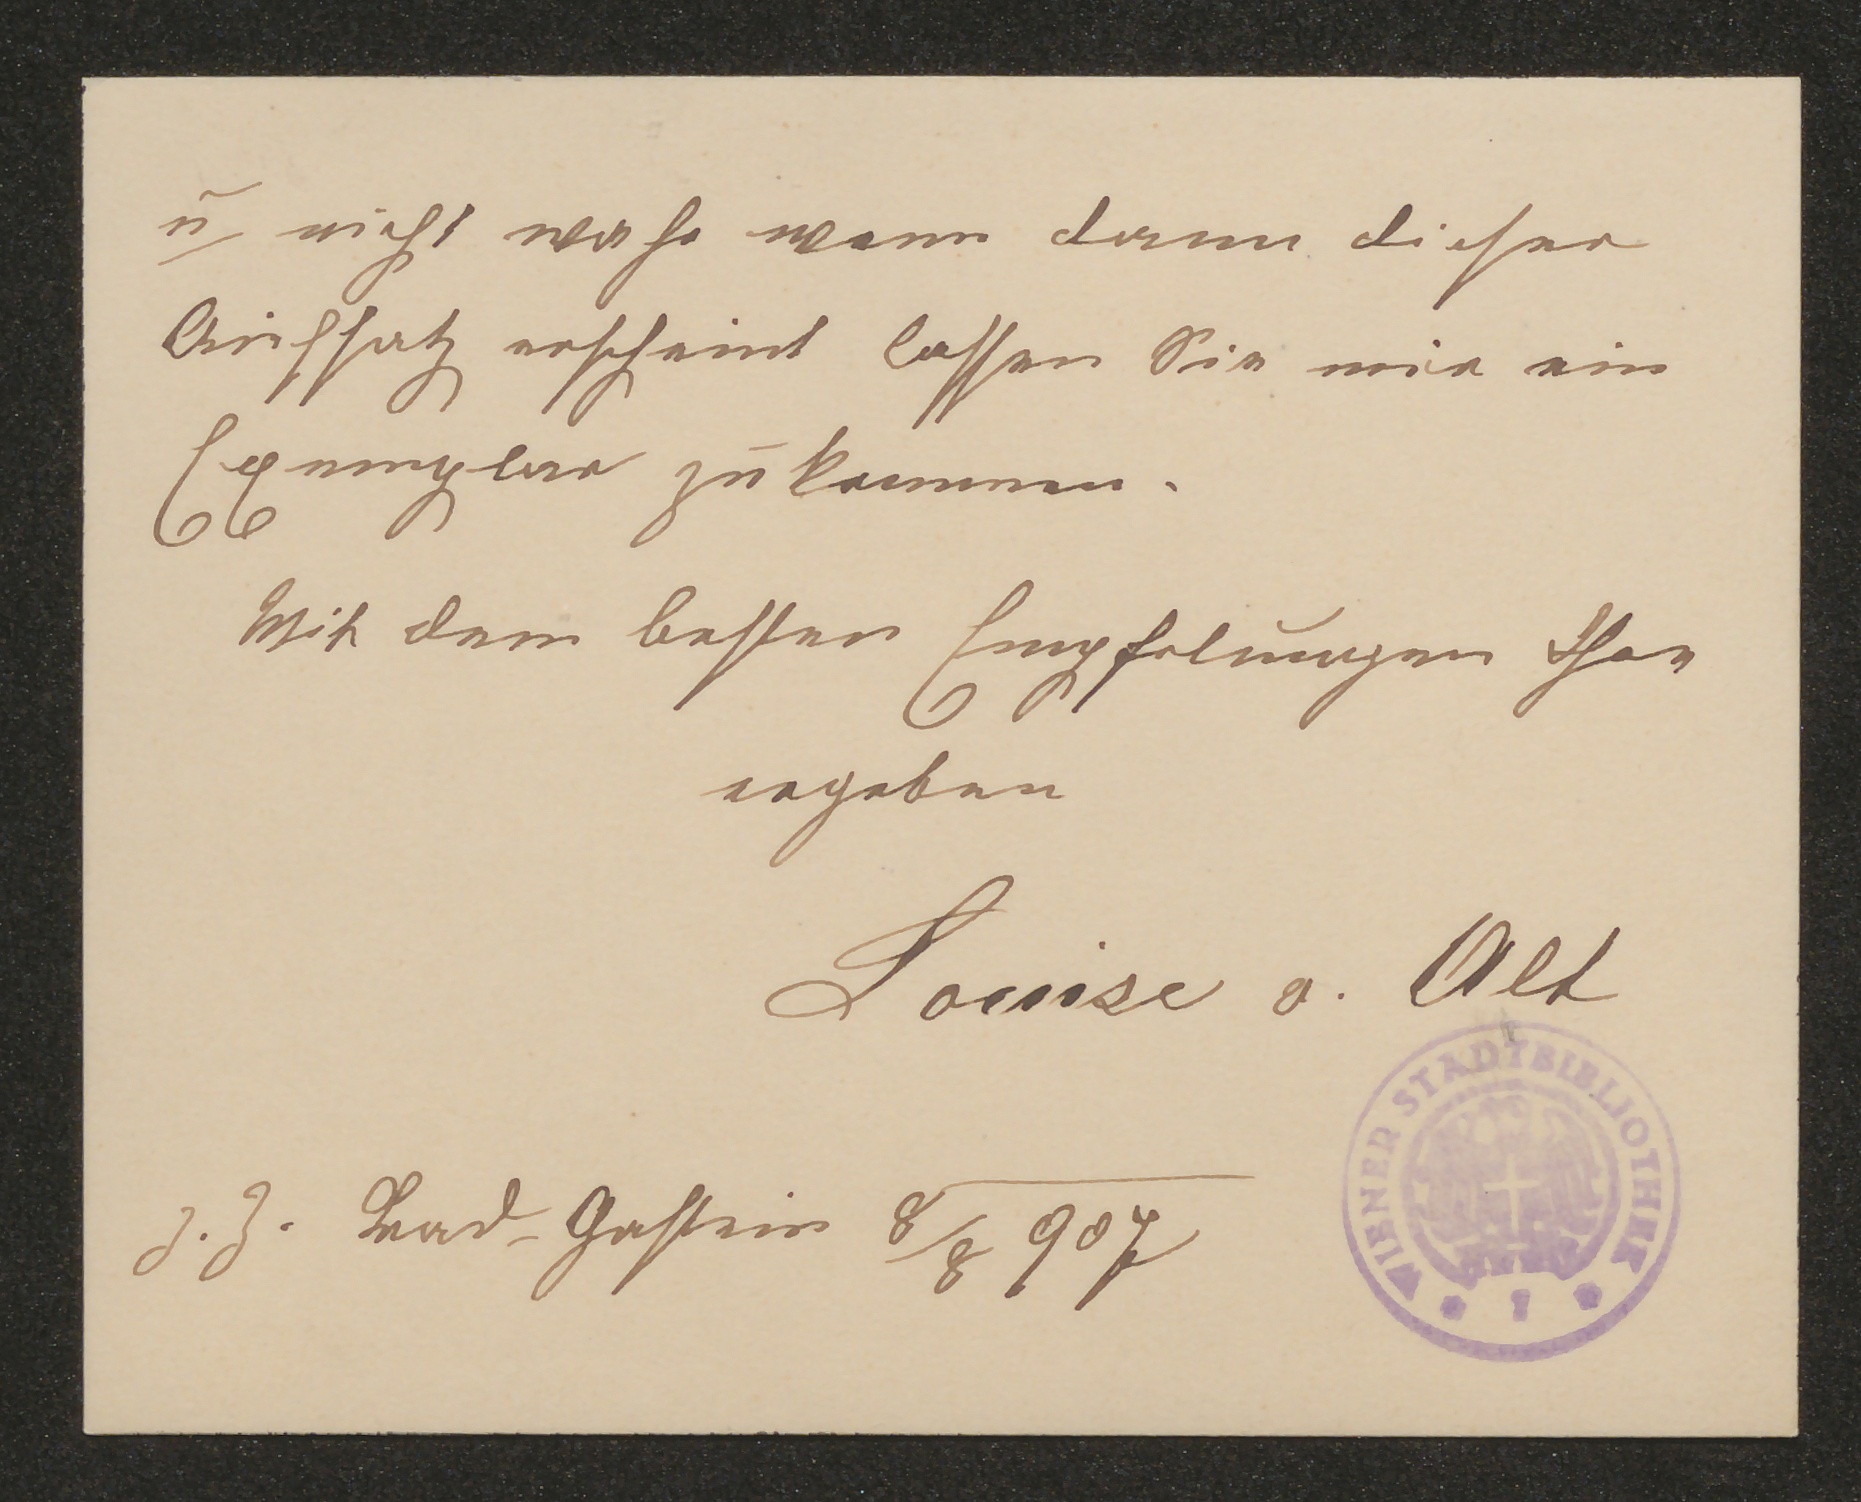 u nicht wahr wenn dann dieser
Aufsatz erscheint lassen Sie mir ein
Exemplar zukommen.
Mit den besten Empfelungen Ihre
ergeben
Louise v. Alt
z. Z. Bad-Gastein 8/8 907
WIENER STADTBIBLIOTHEK